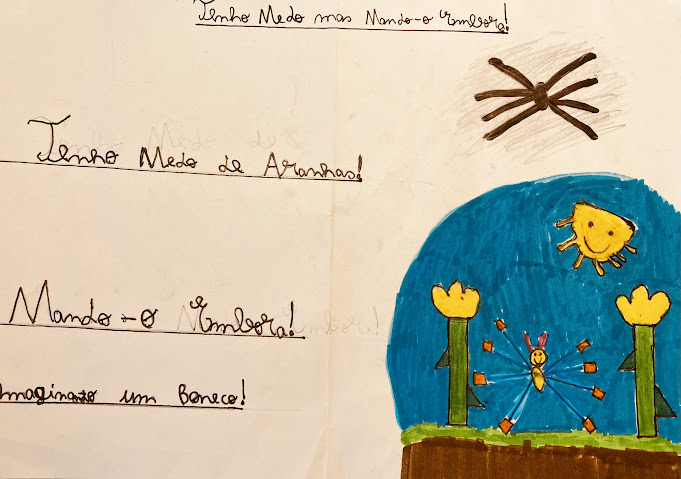 Tenho Medo mas Mando-o Embora!
Tenho Medo de Aranhas!
Mando-o Embora!
Imaginando um Boneco!